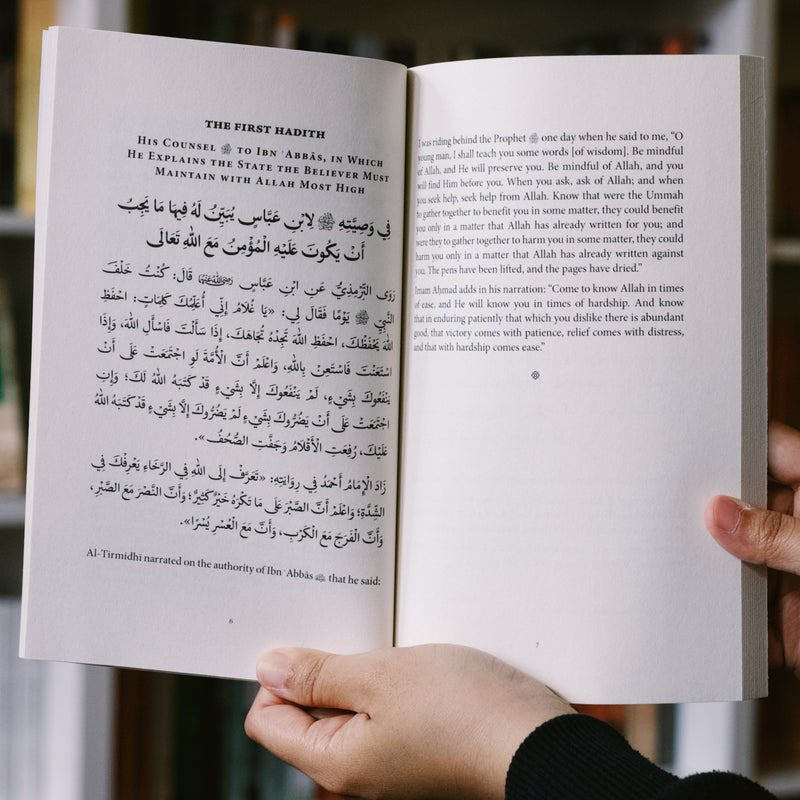 THE FIRST HADITH
HIS COUNSEL ﷺ TO IBN ʿABBĀS, IN WHICH
HE EXPLAINS THE STATE THE BELIEVER MUST
MAINTAIN WITH ALLAH MOST HIGH
فِي وَصِيَّتِهِ ﷺ لِابْنِ عَبَّاسٍ يُبَيِّنُ لَهُ فِيهَا مَا يَجِبُ
أَنْ يَكُونَ عَلَيْهِ الْمُؤْمِنُ مَعَ اللهِ تَعَالَى
رَوَى التِّرْمِذِيُّ عَنِ ابْنِ عَبَّاسٍ قَالَ: كُنْتُ خَلْفَ
النَّبِيِّ ﷺ يَوْمًا فَقَالَ لِي: «يَا غُلَامُ إِنِّي أُعَلِّمُكَ كَلِمَاتٍ: احْفَظِ
اللهَ يَحْفَظْكَ، احْفَظِ اللهَ تَجِدْهُ تُجَاهَكَ، إِذَا سَأَلْتَ فَاسْأَلِ اللهَ، وَإِذَا
اسْتَعَنْتَ فَاسْتَعِنْ بِاللهِ، وَاعْلَمْ أَنَّ الْأُمَّةَ لَوِ اجْتَمَعَتْ عَلَى أَنْ
يَنْفَعُوكَ بِشَيْءٍ، لَمْ يَنْفَعُوكَ إِلَّا بِشَيْءٍ قَدْ كَتَبَهُ اللهُ لَكَ؛ وَإِنِ
اجْتَمَعَتْ عَلَى أَنْ يَضُرُّوكَ بِشَيْءٍ لَمْ يَضُرُّوكَ إِلَّا بِشَيْءٍ قَدْ كَتَبَهُ اللهُ
عَلَيْكَ، رُفِعَتِ الْأَقْلَامُ وَجَفَّتِ الصُّحُفُ».
زَادَ الْإِمَامُ أَحْمَدُ فِي رِوَايَتِهِ: «تَعَرَّفْ إِلَى اللهِ فِي الرَّخَاءِ يَعْرِفْكَ فِي
الشِّدَّةِ؛ وَاعْلَمْ أَنَّ الصَّبْرَ عَلَى مَا تَكْرَهُ خَيْرٌ كَثِيرٌ؛ وَأَنَّ النَّصْرَ مَعَ الصَّبْرِ،
وَأَنَّ الْفَرَجَ مَعَ الْكَرْبِ، وَأَنَّ مَعَ الْعُسْرِ يُسْرًا».
Al-Tirmidhī narrated on the authority of Ibn ʿAbbās that he said:
6
I was riding behind the Prophet ﷺ one day when he said to me, “O
young man, I shall teach you some words [of wisdom]. Be mindful
of Allah, and He will preserve you. Be mindful of Allah, and you
will find Him before you. When you ask, ask of Allah; and when
you seek help, seek help from Allah. Know that were the Ummah
to gather together to benefit you in some matter, they could benefit
you only in a matter that Allah has already written for you; and
were they to gather together to harm you in some matter, they could
harm you only in a matter that Allah has already written against
you. The pens have been lifted, and the pages have dried.”
Imam Ahmad adds in his narration: “Come to know Allah in times
of ease, and He will know you in times of hardship. And know
that in enduring patiently that which you dislike there is abundant
good, that victory comes with patience, relief comes with distress,
and that with hardship comes ease.”
7